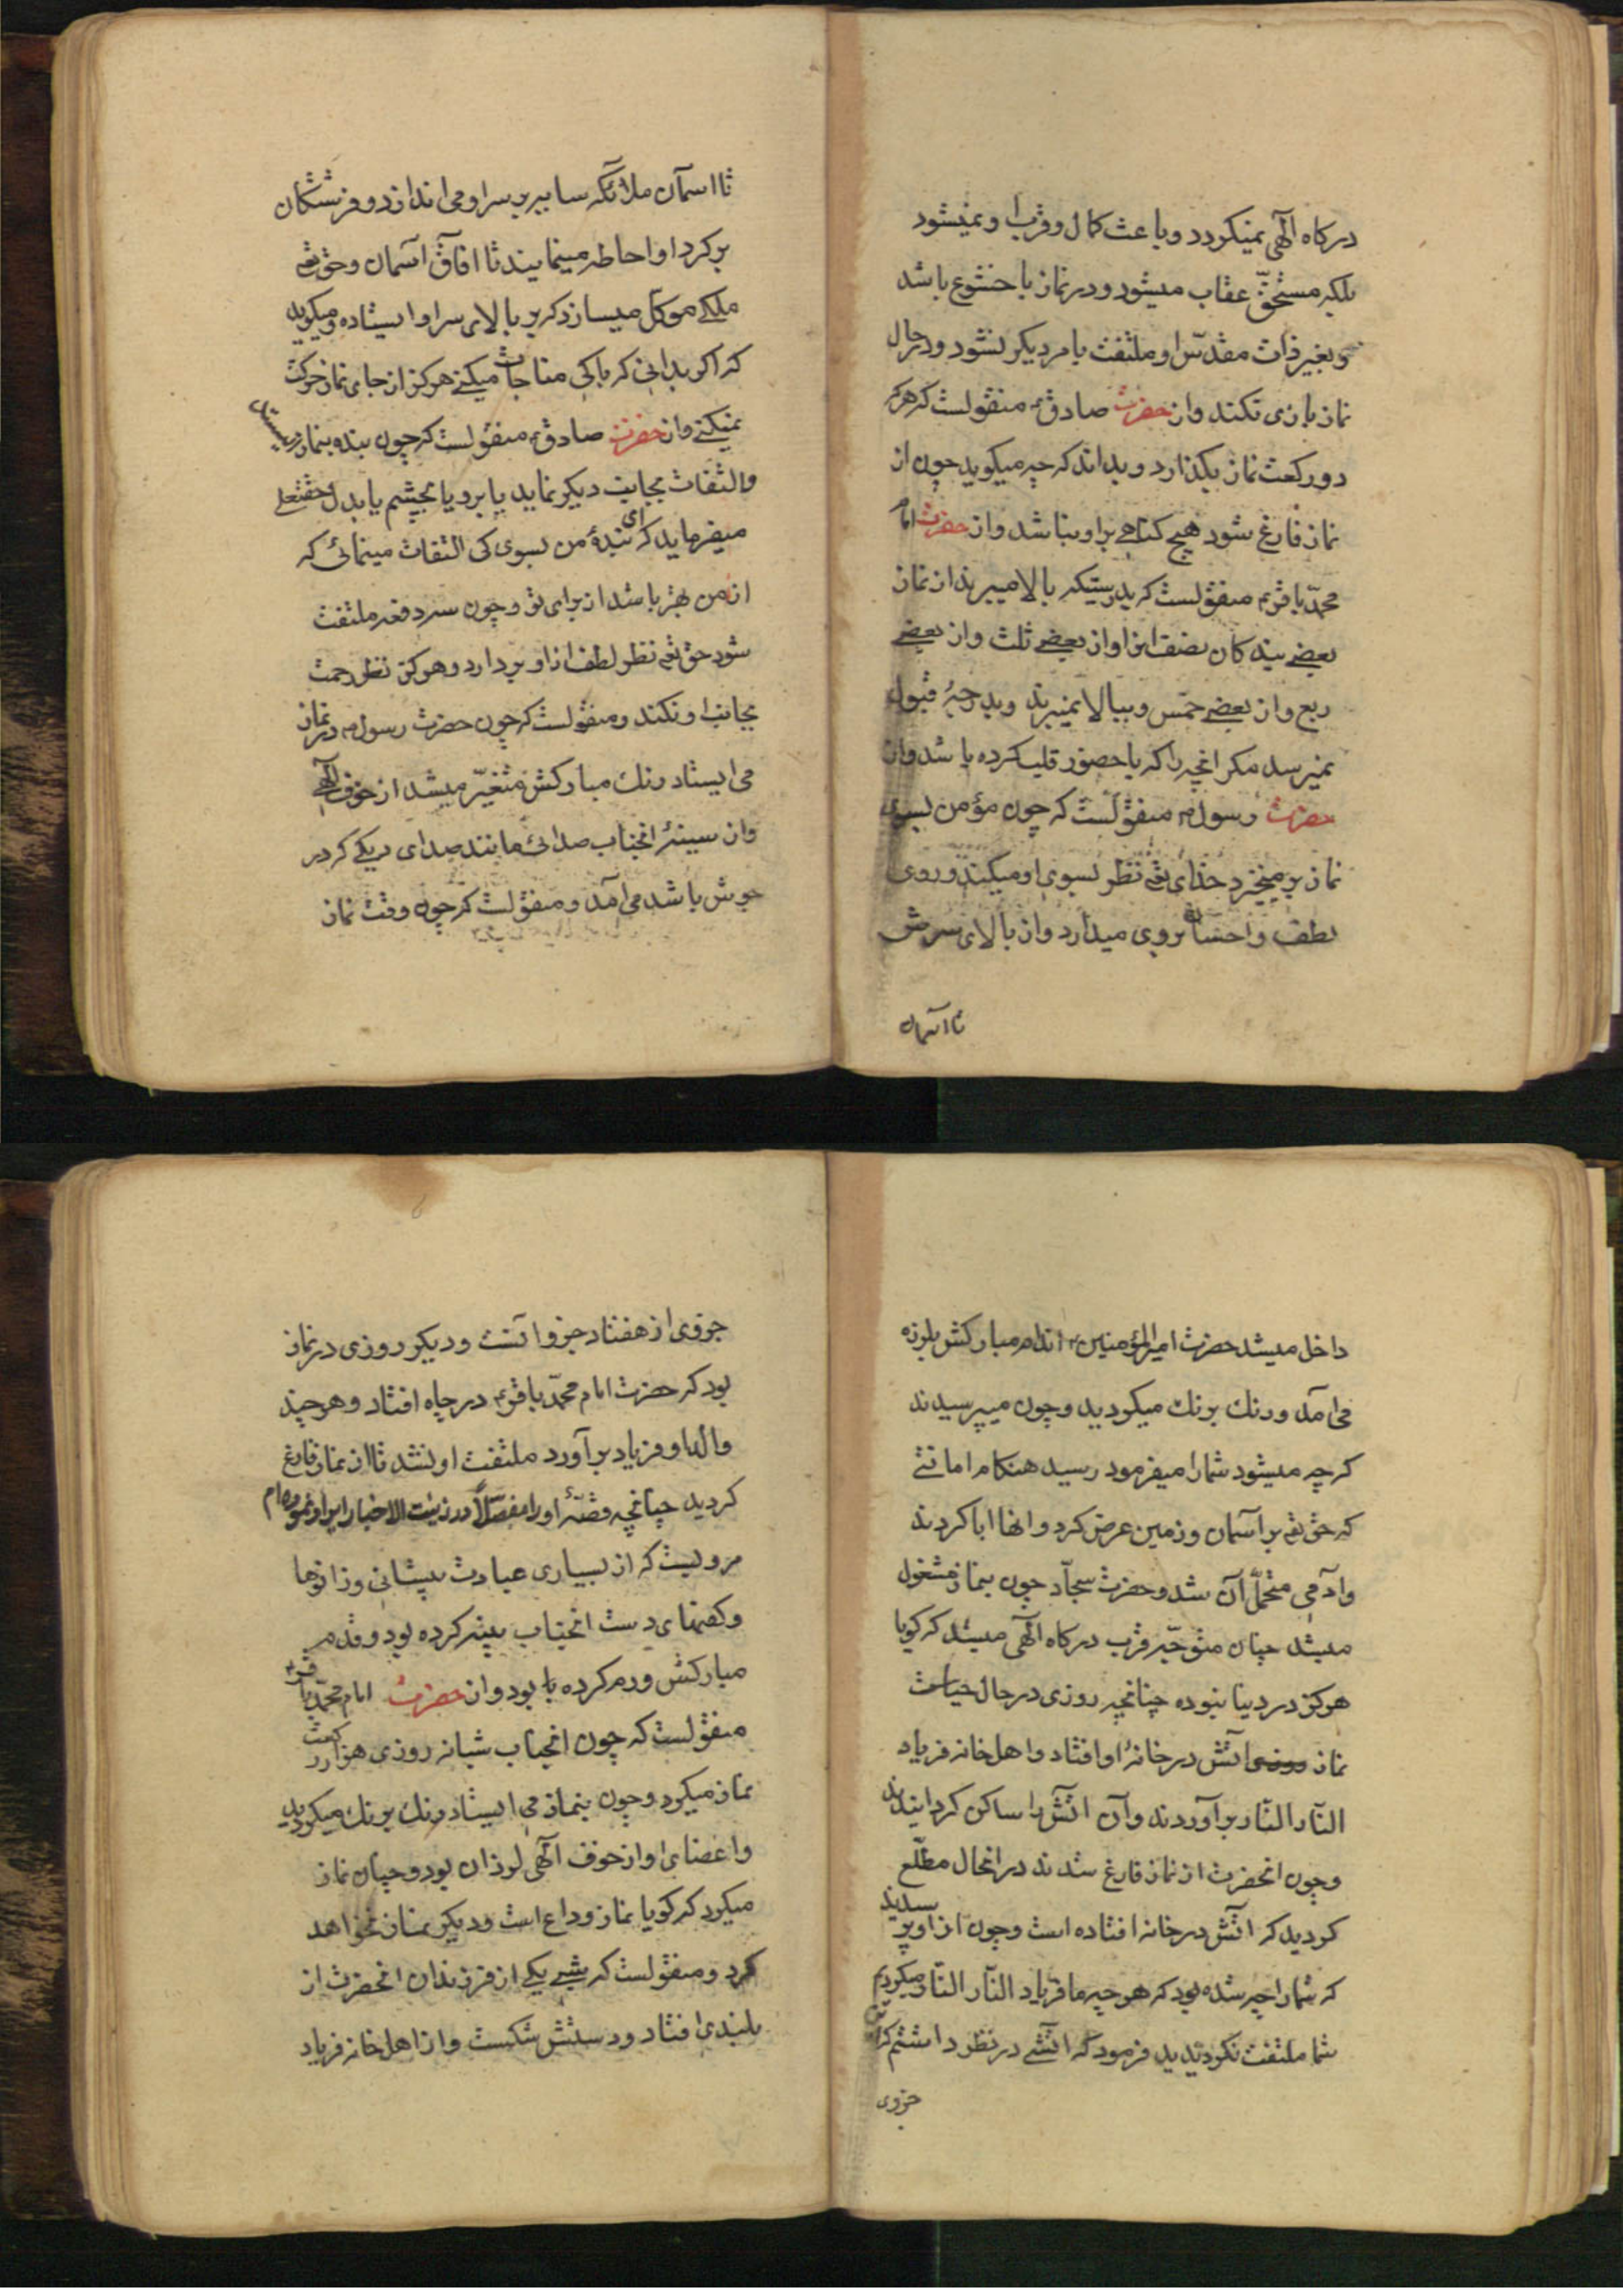 درکاه الهی نمیکردد و باعث کمال و قرب او نمیشود
بلکه مستحقّ عقاب میشود و در نماز با خشوع باشد
و بغیر ذات مقدّس او ملتفت بامر دیکر نشود و در حال
نماز بازی نکند و از حضرت صادق ع منقولست که هرکه
دو رکعت نماز بکذارد و بداند که چه میکوید چون از
نماز فارغ شود هیچ کناهی بر او نباشد و از حضرت امام
محمّد باقر ع منقولست که بدرستیکه بالا میبرند از نماز
بعضی بندکان نصف انرا و از بعضی ثلث و از بعضی
ربع و از بعضی خمس و ببالا نمیبرند و بدرجۀ قبول
نمیرسد مکر انچه را که با حضور قلب کرده باشد و از
حضرت رسول ص منقولست که چون مؤمن بسوی
نماز بر میخیزد خدای تعم نظر بسوی او میکند و روی
لطف و احسان بروی میدارد و از بالای سرش
تا اسمان
تا اسمان ملائکه سایه بر سر او می اندازد و فرشتکان
بر کرد او احاطه مینمایند تا افاق آسمان و حق تعم
ملکی موکّل میسازد که بر بالای سر او ایستاده و میکوید
که اکر بدانی که با کی مناجات میکنی هرکز از جای نماز حرکت
نمیکنی و از حضرت صادق ع منقولست که چون بنده بنماز میایستد
والتفات بجانب دیکر نماید یا برو یا بچشم یا بدل حقتعلی
میفرماید که ای بندۀ من بسوی کی التفات مینمائی که
از من بهتر باشد از برای تو و چون سه دفعه ملتفت
شود حق تعم نظر لطف از او بردارد و هرکز نظر رحمت
بجانب او نکند و منقولست که چون حضرت رسول ص در نماز
می ایستاد رنک مبارکش متغیّر میشد از خوف الهی
و از سینۀ انجناب صدائی مانند صدای دیکی که در
جوش باشد می آمد و منقولست که چون وقت نماز
داخل میشد حضرت امیر المؤمنین ع اندام مبارکش بلرزه
می آمد و رنک برنک میکردید و چون میپرسیدند
که چه میشود شما را میفرمود رسید هنکام امانتی
که حق تعم بر آسمان و زمین عرض کرد و انها ابا کردند
و ادمی متحمّل آن شد و حضرت سجّاد چون بنماز مشغول
میشد چنان متوجّه قرب درکاه الهی میشد که کویا
هرکز در دنیا نبوده چنانچه روزی در حال حیات
نماز اتش در خانۀ او افتاد و اهل خانه فریاد
النّار النّار برآوردند و آن اتش را ساکن کردانیدند
و چون انحضرت از نماز فارغ شدند در انحال مطّلع
کردید که اتش در خانه افتاده است و چون از او پرسیدند
که شما را چه شده بود که هر چه ما فریاد النّار النّار میکردیم
شما ملتفت نکردیدید فرمود که اتشی در نظر داشتم که اتش
جزوی
جزوی از هفتاد جزو انست و دیکر روزی در نماز
بود که حضرت امام محمّد باقر ع در چاه افتاد و هر چند
والدۀ او فریاد بر آورد ملتفت او نشد تا از نماز فارغ
کردید چنانچه قصّۀ او را مفصّلاً در زینت الاخبار ایراد نموده ام
مرویست که از بسیاری عبادت پیشانی و زانوها
و کفهای دست انجناب پینه کرده بود و قدم
مبارکش ورم کرده بود و از حضرت امام محمّد باقر ع
منقولست که چون انجناب شبانه روزی هزار رکعت
نماز میکرد و چون بنماز می ایستاد رنک برنک میکردید
و اعضای او از خوف الهی لرزان بود و چنان نماز
میکرد که کویا نماز وداع است و دیکر نماز نخواهد
کرد و منقولست که شبی یکی از فرزندان انحضرت از
بلندی افتاد و دستش شکست و از اهل خانه فریاد